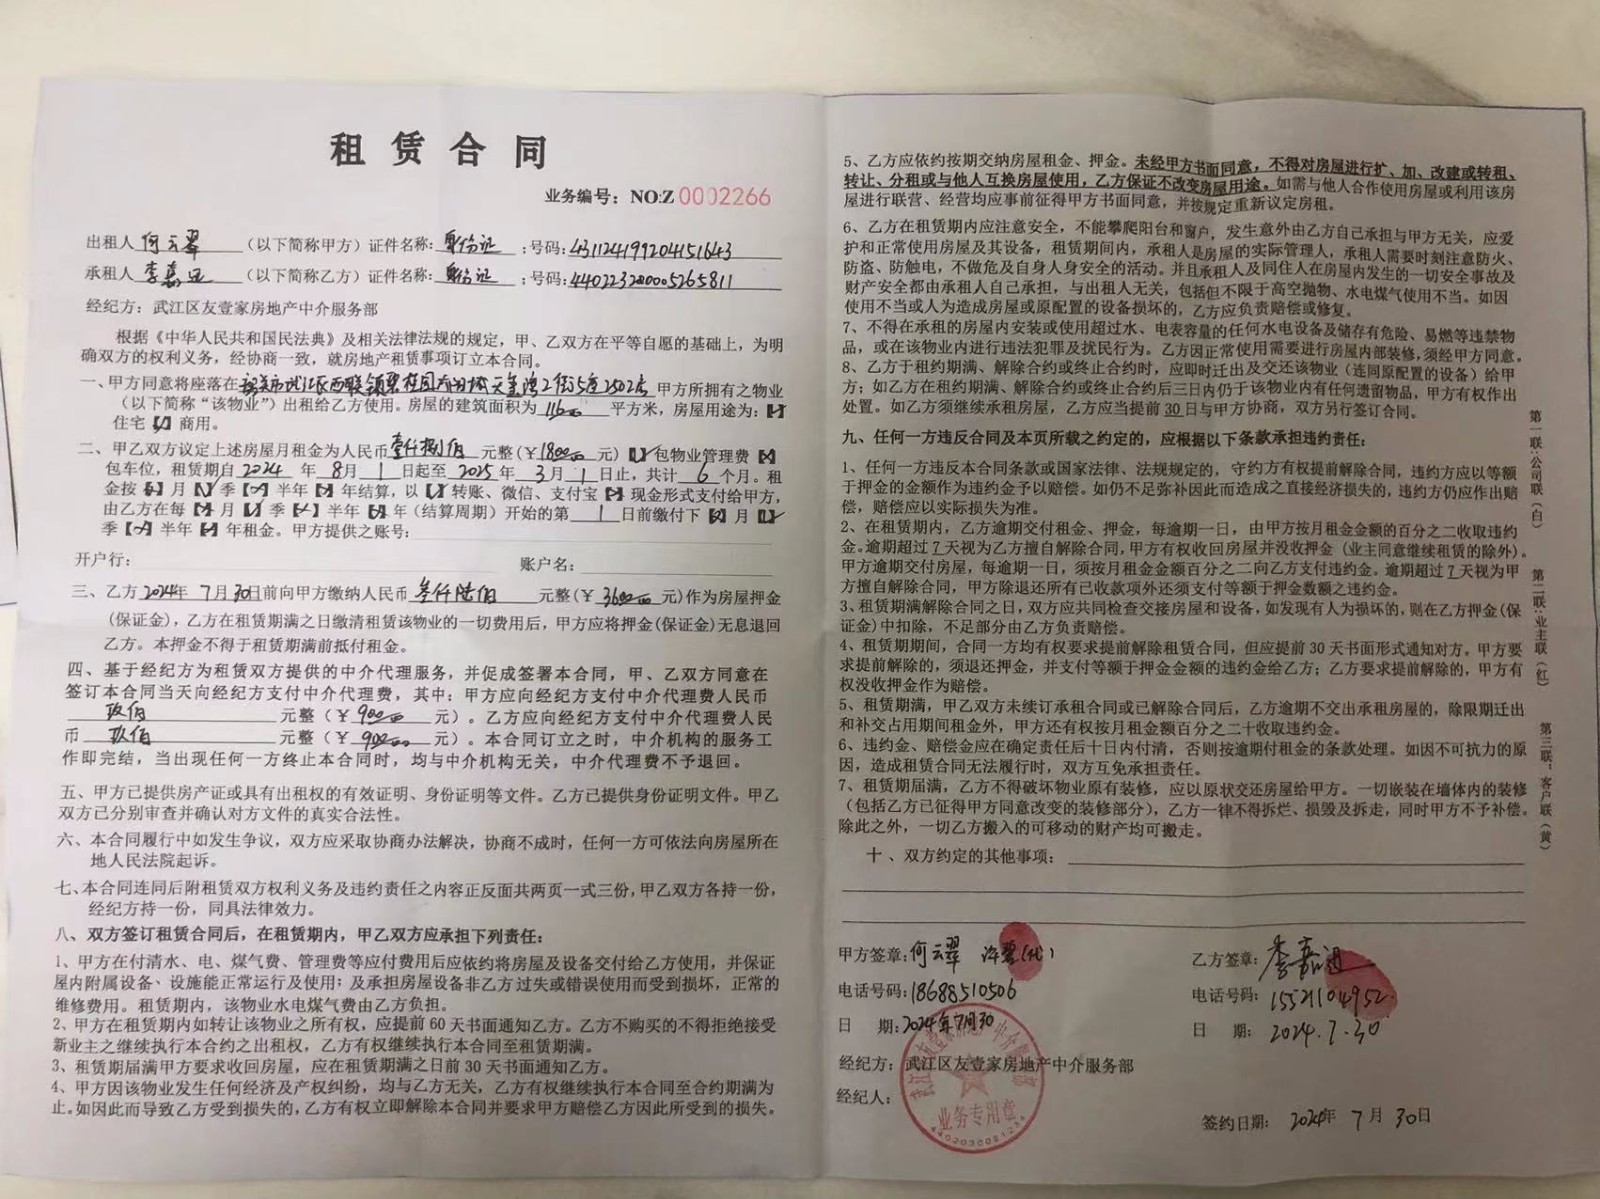 租赁合同
业务编号：NO:Z 0002266
出租人 何云翠 （以下简称甲方）证件名称：身份证 ；号码：431124199204151643
承租人 李嘉 （以下简称乙方）证件名称：身份证 ；号码：440223200005265811
经纪方：武江区友壹家房地产中介服务部
根据《中华人民共和国民法典》及相关法律法规的规定，甲、乙双方在平等自愿的基础上，为明
确双方的权利义务，经协商一致，就房地产租赁事项订立本合同。
一、甲方同意将座落在韶关市武江区西联镇碧桂园 天玺湾2街5座2502房 甲方所拥有之物业
（以下简称“该物业”）出租给乙方使用。房屋的建筑面积为 116 平方米，房屋用途为：【】
住宅【】商用。
二、甲乙双方议定上述房屋月租金为人民币 壹仟捌佰 元整（￥1800 元）【】包物业管理费【】
包车位，租赁期自 2024 年 8月 1 日起至 2025 年 3月 1 日止，共计 6 个月。租
金按【】月【】季【】半年【】年结算，以【】转账、微信、支付宝【】现金形式支付给甲方，
由乙方在每【】月【】季【】半年【】年（结算周期）开始的第 1 日前缴付下【】月【】
季【】半年【】年租金。甲方提供之账号：
开户行： 账户名：
三、乙方 2024年 7月30日前向甲方缴纳人民币 叁仟陆佰 元整（￥3600 元)作为房屋押金
(保证金)，乙方在租赁期满之日缴清租赁该物业的一切费用后，甲方应将押金(保证金)无息退回
乙方。本押金不得于租赁期满前抵付租金。
四、基于经纪方为租赁双方提供的中介代理服务，并促成签署本合同，甲、乙双方同意在
签订本合同当天向经纪方支付中介代理费，其中：甲方应向经纪方支付中介代理费人民币
玖佰 元整（￥900 元）。乙方应向经纪方支付中介代理费人民
币 玖佰 元整（￥900 元）。本合同订立之时，中介机构的服务工
作即完结，当出现任何一方终止本合同时，均与中介机构无关，中介代理费不予退回。
五、甲方已提供房产证或具有出租权的有效证明、身份证明等文件。乙方已提供身份证明文件。甲乙
双方已分别审查并确认对方文件的真实合法性。
六、本合同履行中如发生争议，双方应采取协商办法解决，协商不成时，任何一方可依法向房屋所在
地人民法院起诉。
七、本合同连同后附租赁双方权利义务及违约责任之内容正反面共两页一式三份，甲乙双方各持一份，
经纪方持一份，同具法律效力。
八、双方签订租赁合同后，在租赁期内，甲乙双方应承担下列责任：
1、甲方在付清水、电、煤气费、管理费等应付费用后应依约将房屋及设备交付给乙方使用，并保证
屋内附属设备、设施能正常运行及使用；及承担房屋设备非乙方过失或错误使用而受到损坏，正常的
维修费用。租赁期内，该物业水电煤气费由乙方负担。
2、甲方在租赁期内如转让该物业之所有权，应提前60天书面通知乙方。乙方不购买的不得拒绝接受
新业主之继续执行本合约之出租权，乙方有权继续执行本合同至租赁期满。
3、租赁期届满甲方要求收回房屋，应在租赁期满之日前30天书面通知乙方。
4、甲方因该物业发生任何经济及产权纠纷，均与乙方无关，乙方有权继续执行本合同至合约期满为
止。如因此而导致乙方受到损失的，乙方有权立即解除本合同并要求甲方赔偿乙方因此所受到的损失。
5、乙方应依约按期交纳房屋租金、押金。未经甲方书面同意，不得对房屋进行扩、加、改建或转租、
转让、分租或与他人互换房屋使用，乙方保证不改变房屋用途。如需与他人合作使用房屋或利用该房
屋进行联营、经营均应事前征得甲方书面同意，并按规定重新议定房租。
6、乙方在租赁期内应注意安全，不能攀爬阳台和窗户，发生意外由乙方自己承担与甲方无关，应爱
护和正常使用房屋及其设备，租赁期间内，承租人是房屋的实际管理人，承租人需要时刻注意防火、
防盗、防触电，不做危及自身人身安全的活动。并且承租人及同住人在房屋内发生的一切安全事故及
财产安全都由承租人自己承担，与出租人无关，包括但不限于高空抛物、水电煤气使用不当。如因
使用不当或人为造成房屋或原配置的设备损坏的，乙方应负责赔偿或修复。
7、不得在承租的房屋内安装或使用超过水、电表容量的任何水电设备及储存有危险、易燃等违禁物
品，或在该物业内进行违法犯罪及扰民行为。乙方因正常使用需要进行房屋内部装修，须经甲方同意。
8、乙方于租约期满、解除合约或终止合约时，应即时迁出及交还该物业（连同原配置的设备）给甲
方；如乙方在租约期满、解除合约或终止合约后三日内仍于该物业内有任何遗留物品，甲方有权作出
处置。如乙方须继续承租房屋，乙方应当提前30日与甲方协商，双方另行签订合同。
九、任何一方违反合同及本页所载之约定的，应根据以下条款承担违约责任：
1、任何一方违反本合同条款或国家法律、法规规定的，守约方有权提前解除合同，违约方应以等额
于押金的金额作为违约金予以赔偿。如仍不足弥补因此而造成之直接经济损失的，违约方仍应作出赔
偿，赔偿应以实际损失为准。
2、在租赁期内，乙方逾期交付租金、押金，每逾期一日，由甲方按月租金金额的百分之二收取违约
金。逾期超过7天视为乙方擅自解除合同，甲方有权收回房屋并没收押金（业主同意继续租赁的除外）。
甲方逾期交付房屋，每逾期一日，须按月租金金额百分之二向乙方支付违约金。逾期超过7天视为甲
方擅自解除合同，甲方除退还所有已收款项外还须支付等额于押金数额之违约金。
3、租赁期满解除合同之日，双方应共同检查交接房屋和设备，如发现有人为损坏的，则在乙方押金(保
证金)中扣除，不足部分由乙方负责赔偿。
4、租赁期期间，合同一方均有权要求提前解除租赁合同，但应提前30天书面形式通知对方。甲方要
求提前解除的，须退还押金，并支付等额于押金金额的违约金给乙方；乙方要求提前解除的，甲方有
权没收押金作为赔偿。
5、租赁期满，甲乙双方未续订承租合同或已解除合同后，乙方逾期不交出承租房屋的，除限期迁出
和补交占用期间租金外，甲方还有权按月租金额百分之二十收取违约金。
6、违约金、赔偿金应在确定责任后十日内付清，否则按逾期付租金的条款处理。如因不可抗力的原
因，造成租赁合同无法履行时，双方互免承担责任。
7、租赁期届满，乙方不得破坏物业原有装修，应以原状交还房屋给甲方。一切嵌装在墙体内的装修
（包括乙方已征得甲方同意改变的装修部分），乙方一律不得拆烂、损毁及拆走，同时甲方不予补偿。
除此之外，一切乙方搬入的可移动的财产均可搬走。
十、双方约定的其他事项：
甲方签章：何云翠 (代) 乙方签章：李嘉
电话号码：18688510506 电话号码：15521104952
日 期：2024年7月30 日 期：2024.7.30
经纪方：武江区友壹家房地产中介服务部
经纪人：
签约日期：2024年 7月 30日
武江区友壹家房地产中介服务部
业务专用章
第一联：公司联（白）
第二联：业主联（红）
第三联：客户联（黄）